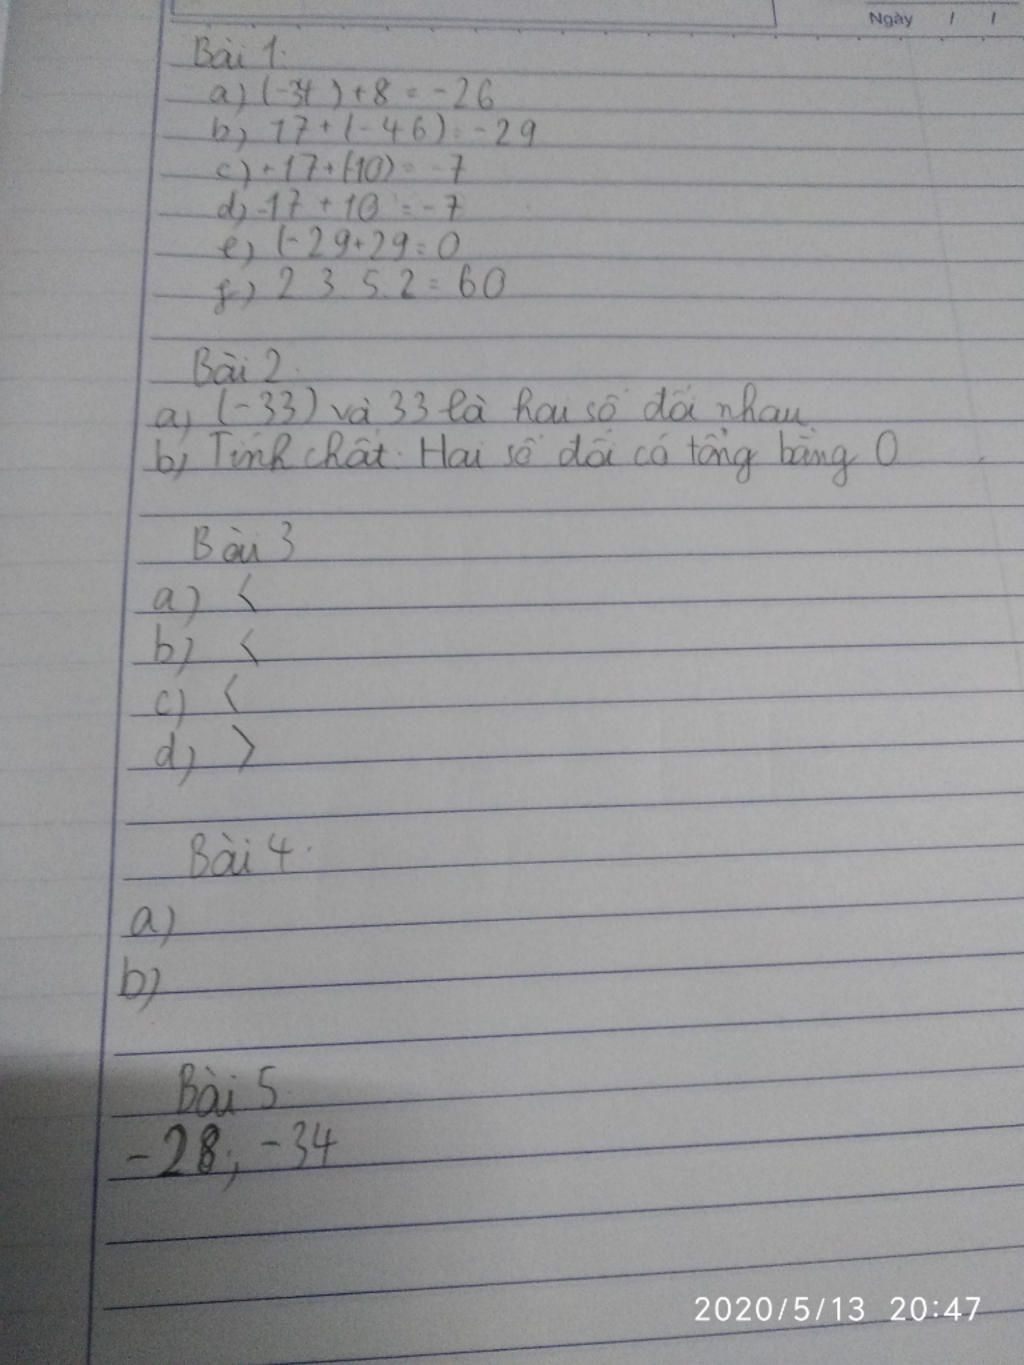 Ngày / /
Bài 1:
a) (-34) + 8 = -26
b) 17 + (-46) = -29
c) -17 + (10) = -7
d) -17 + 10 = -7
e) (-29 + 29 = 0
f) 2 3. 5. 2 = 60
Bài 2.
a) (-33) và 33 là hai số đối nhau
b) Tính chất: Hai số đối có tổng bằng 0
Bài 3
a) <
b) <
c) <
d) >
Bài 4.
a)
b)
Bài 5
-28; -34
2020/5/13 20:47